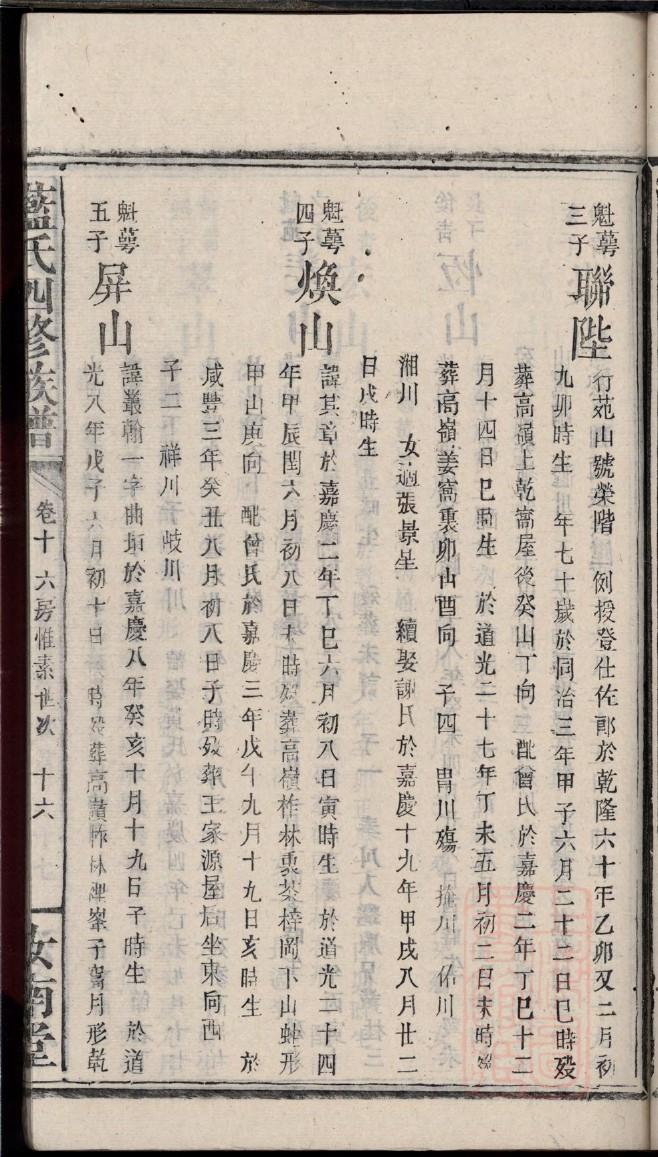 魁蕚三子
聯陛
行苑山號榮階 例授登仕佐郎於乾隆六十年乙卯又二月初
九卯時生 年七十歲於同治三年甲子六月二十二日巳時歿
葬高嶺上乾窩屋後癸山丁向 配曾氏於嘉慶二年丁巳十二
月十四日巳時生 於道光二十七年丁未五月初二日未時歿
葬高嶺姜窩裏卯山酉向 子四 胄川殤 川 佑川
湘川 女適張景星 續娶謝氏於嘉慶十九年甲戌八月廿二
日戌時生
魁蕚四子
煥山
諱其章於嘉慶二年丁巳六月初八日寅時生 於道光二十四
年甲辰閏六月初八日 時歿葬高嶺柞林裏茶梓岡下山蚌形
甲山庚向 配曾氏於嘉慶三年戊午九月十九日亥時生 於
咸豐三年癸丑八月初八日子時歿葬王家源屋后坐東向西
子二 祥川 岐川
魁蕚五子
屏山
諱叢翰一字曲垣於嘉慶八年癸亥十月十九日子時生 於道
光八年戊子六月初十日 時歿葬高嶺柞林 峯子窩月形乾
藍氏四修族譜
卷十 六房惟素世次 十六
汝南堂